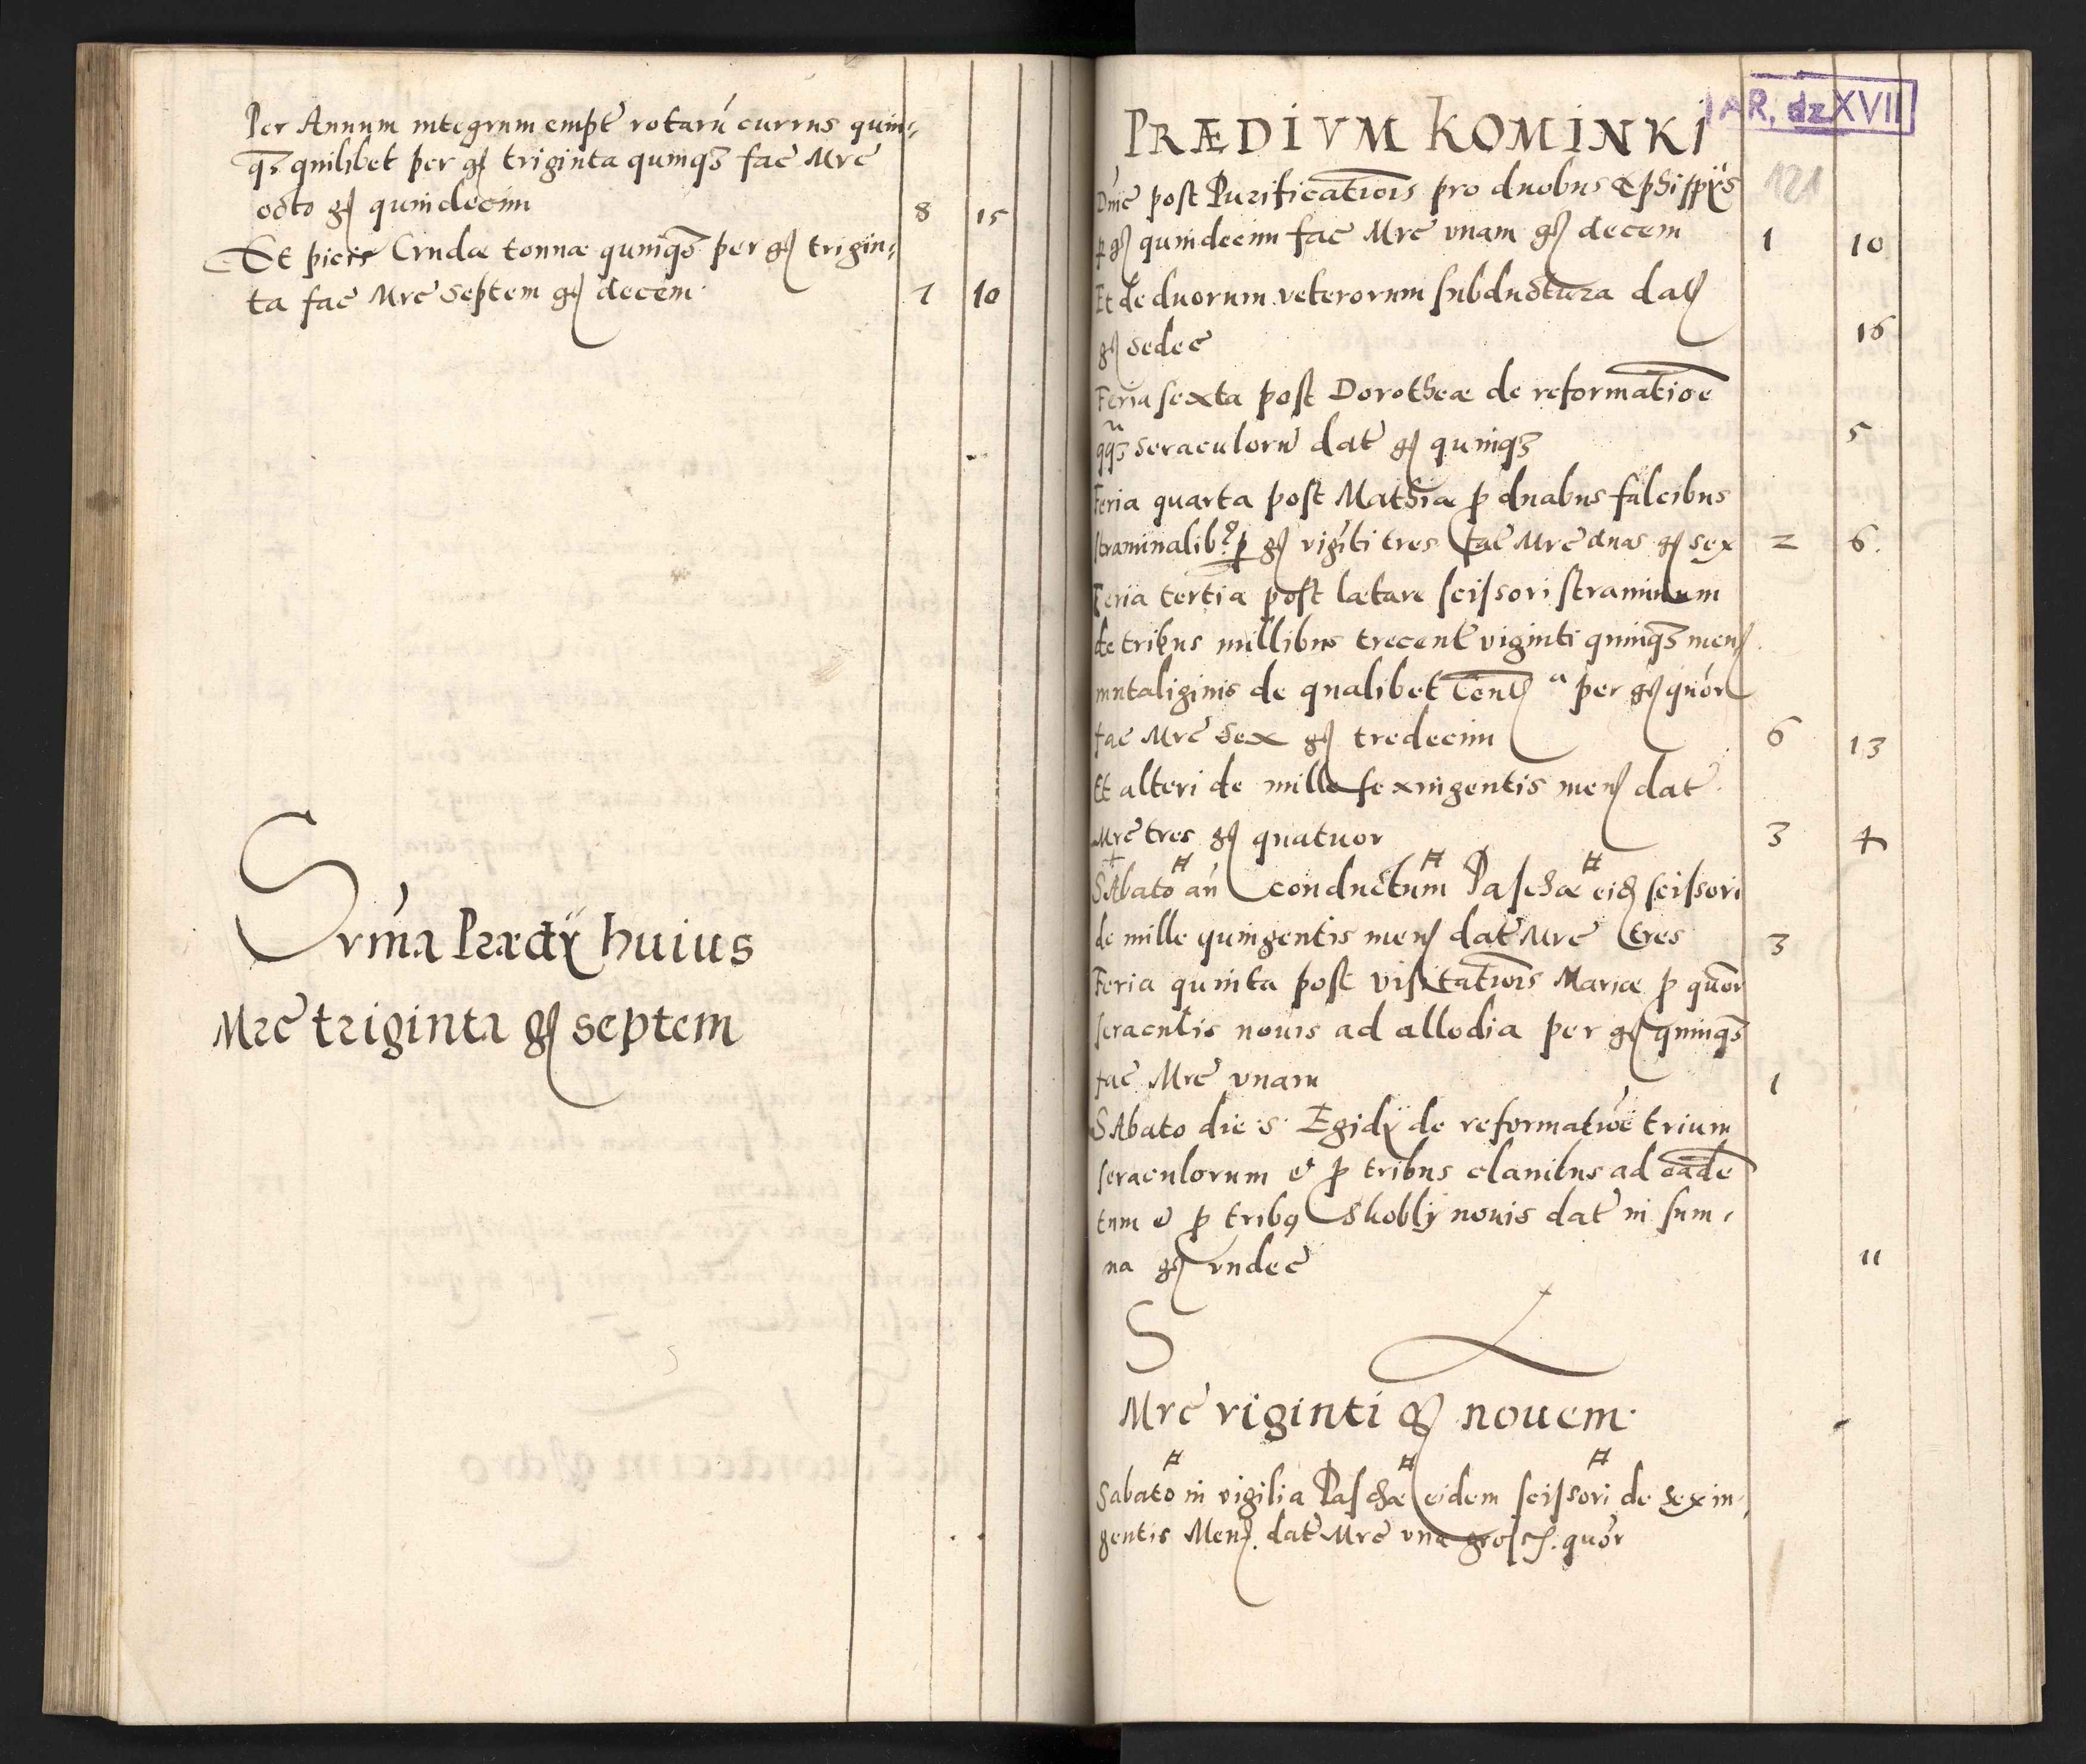 Per Annum integrum empt rotaru currus quin⸗
qȝ quilibet per gſ triginta quinqȝ fac Mrc
octo gſ quindecim 8 15
Et picis Crudæ tonnæ quinqȝ per gſ trigin⸗
ta fac Mrc septem gſ decem 7 10
Suma Prædÿ huius
Mrc triginta gſ septem
JAR, dz XVII
PRÆDIVM KOMINKI
121
Dnic post Purificatiois pro duobus Ephippÿs
p gſ quindecim fac Mrc vnam gſ decem 1 10
Et de duorum veterorum subductura dat
gſ sedec 16
Feria sexta post Dorotheæ de reformatioe
qnqȝ seraculoru dat gſ quinqȝ 5
Feria quarta post Mathiæ p duabus falcibus
straminalibꝰ p gſ viginti tres fac Mrc duas gſ sex 2 6
Feria tertia post lætare scissori straminum
de tribus millibus trecent viginti quinqȝ menſ
mutaliginis de qualibet Cent a per gſ quor
fac Mrc sex gſ tredecim 6 13
Et alteri de mille sexingentis menſ dat
Mrc tres gſ quatuor 3 4
SAbato an conductum Paschæ eid scissori
de mille quingentis menſ dat Mrc tres 3
Feria quinta post visitatiois Mariæ p quor
seraculis nouis ad allodia per gſ quinqȝ
fac Mrc vnam 1
SAbato die S Egidÿ de reformatioe trium
seraculorum et p tribus clauibus ad eade
tum et p tribꝰ Skobly nouis dat in sum⸗
ma gſ vndec 11
S
Mrc viginti gſ nouem
Sabato in vigilia Paschæ eidem scissori de sexin⸗
gentis Menſ. dat Mrc vna grosſ. quor